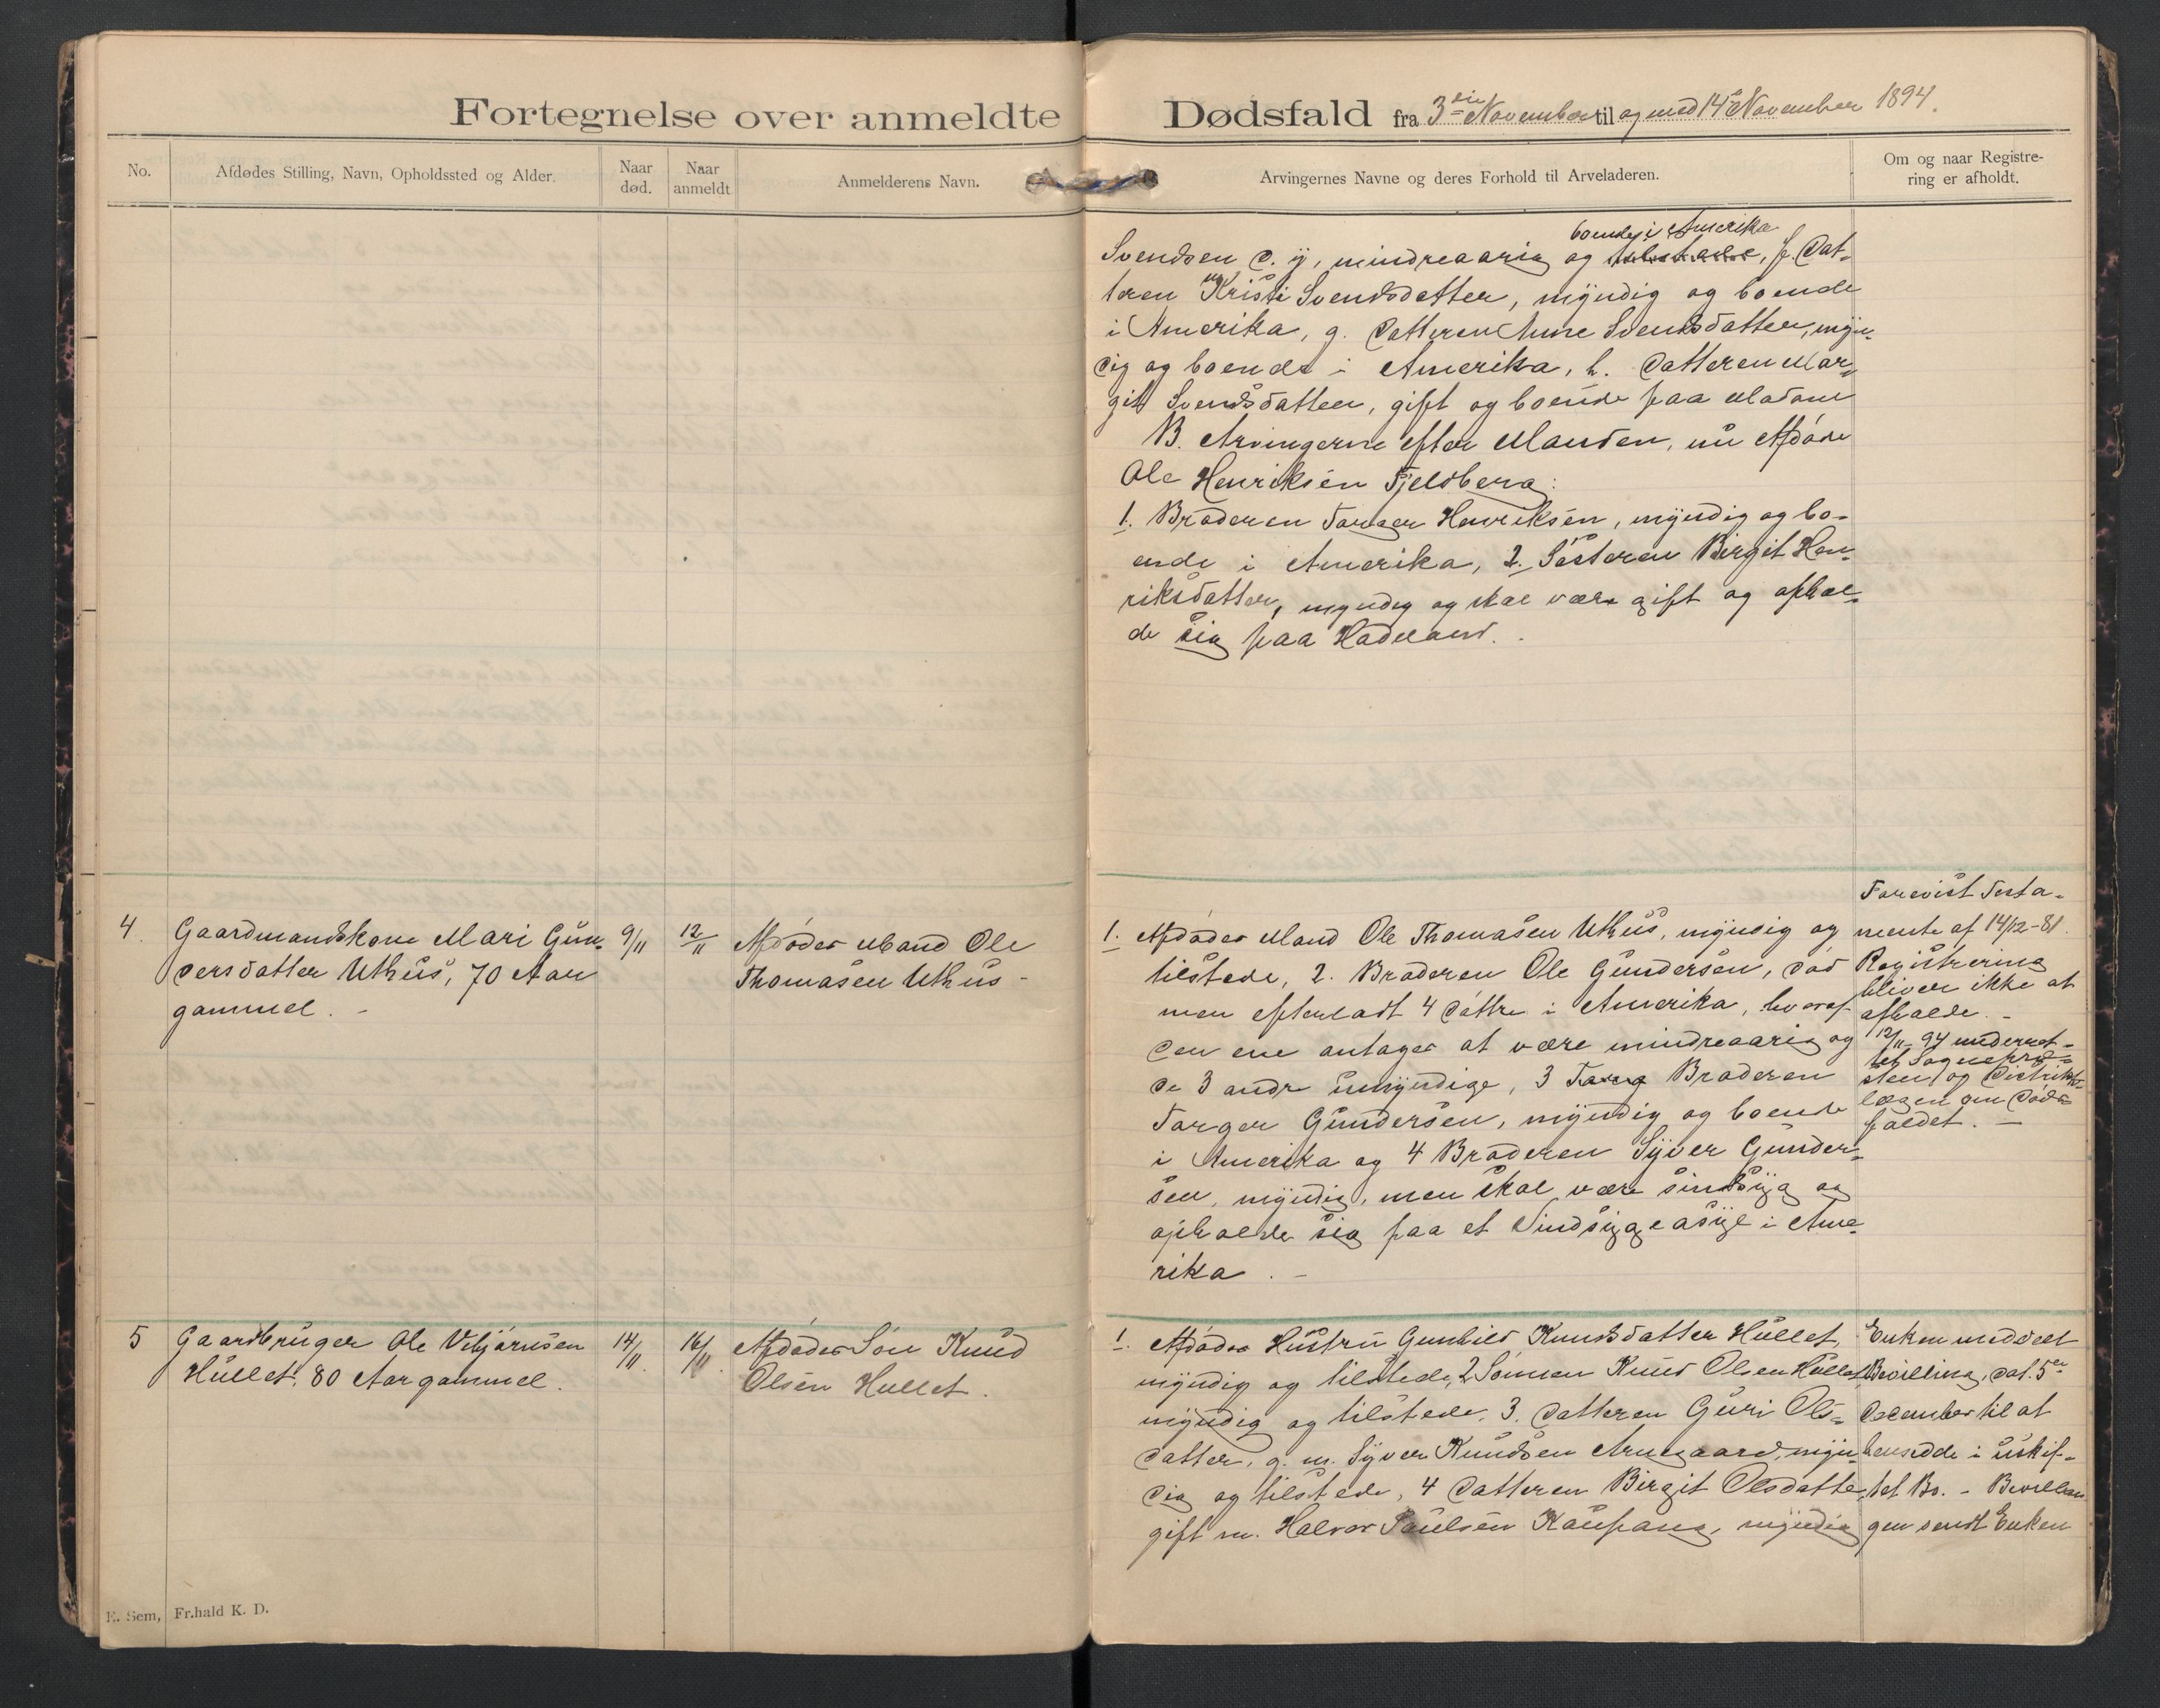 Fortegnelse over anmeldte Dødsfald fra 3die November til og med 14de November 1894.
No.
Afdødes Stilling, Navn, Opholdssted og Alder.
Naar
død.
Naar
anmeldt
Anmelderens Navn.
Arvingernes Navne og deres Forhold til Arveladeren.
Om og naar Registre-
ring er afholdt.
boende i Amerika
Svendsen d. y, mindreaarig og tilstede, f. Dat-
teren Kristi Svendsdatter, myndig og boende
i Amerika, g. Datteren Anne Svendsdatter, myn-
dig og boende i Amerika, h. Datteren Mar-
git Svendsdatter, gift og boende paa
B. Arvingerne efter Manden, nu Afdøde
Ole Henriksen Fjeldberg:
1. Broderen Torger Henriksen, myndig og bo-
ende i Amerika, 2. Søsteren Birgit Hen-
riksdatter, myndig og skal være gift og ophol-
de sig paa Hadeland.
4.
Gaardmandskone Mari Gun-
dersdatter Uthus, 70 Aar
gammel. -
9/11
12/11
Afdødes Mand Ole
Thomasen Uthus -
1. Afdødes Mand Ole Thomasen Uthus, myndig og
tilstede, 2. Broderen Ole Gundersen, død
men efterladt 4 Døttre i Amerika, hvoraf
den ene antages at være mindreaarig og
de 3 andre umyndige, 3 Torg Broderen
Torger Gundersen, myndig og boende
i Amerika og 4 Broderen Syver Gunder-
sen, myndig, men skal være sindsyg og
opholde sig paa et Sindsygeasyl i Ame-
rika. -
Forevist Testa-
mente af 14/12-81.
Registrering
bliver ikke at
afholde. -
12/11 94 underret-
tet Sognepræ-
sten og Distrikts-
lægen om Døds-
faldet. -
5
Gaardbruger Ole Vebjørnsen
Hullet, 80 Aar gammel.
14/11.
16/11.
Afdødes Søn Knud
Olsen Hullet.
1. Afdødes Hustru Gunhild Knudsdatter Hullet,
myndig og tilstede, 2 Sønnen Knud Olsen Hullet,
myndig og tilstede, 3. Datteren Guri Ols-
datter, g. m. Syver Knudsen Arnegaard, myn-
dig og tilstede, 4 Datteren Birgit Olsdatter,
gift m. Halvor Paulsen Kaupang, myndig
Enken meddelt
Bevilling, dat. 5te
December til at
hensidde i uskif-
tet Bo. - Bevillin-
gen sendt Enken
E. Sem, Fr.hald K. D.